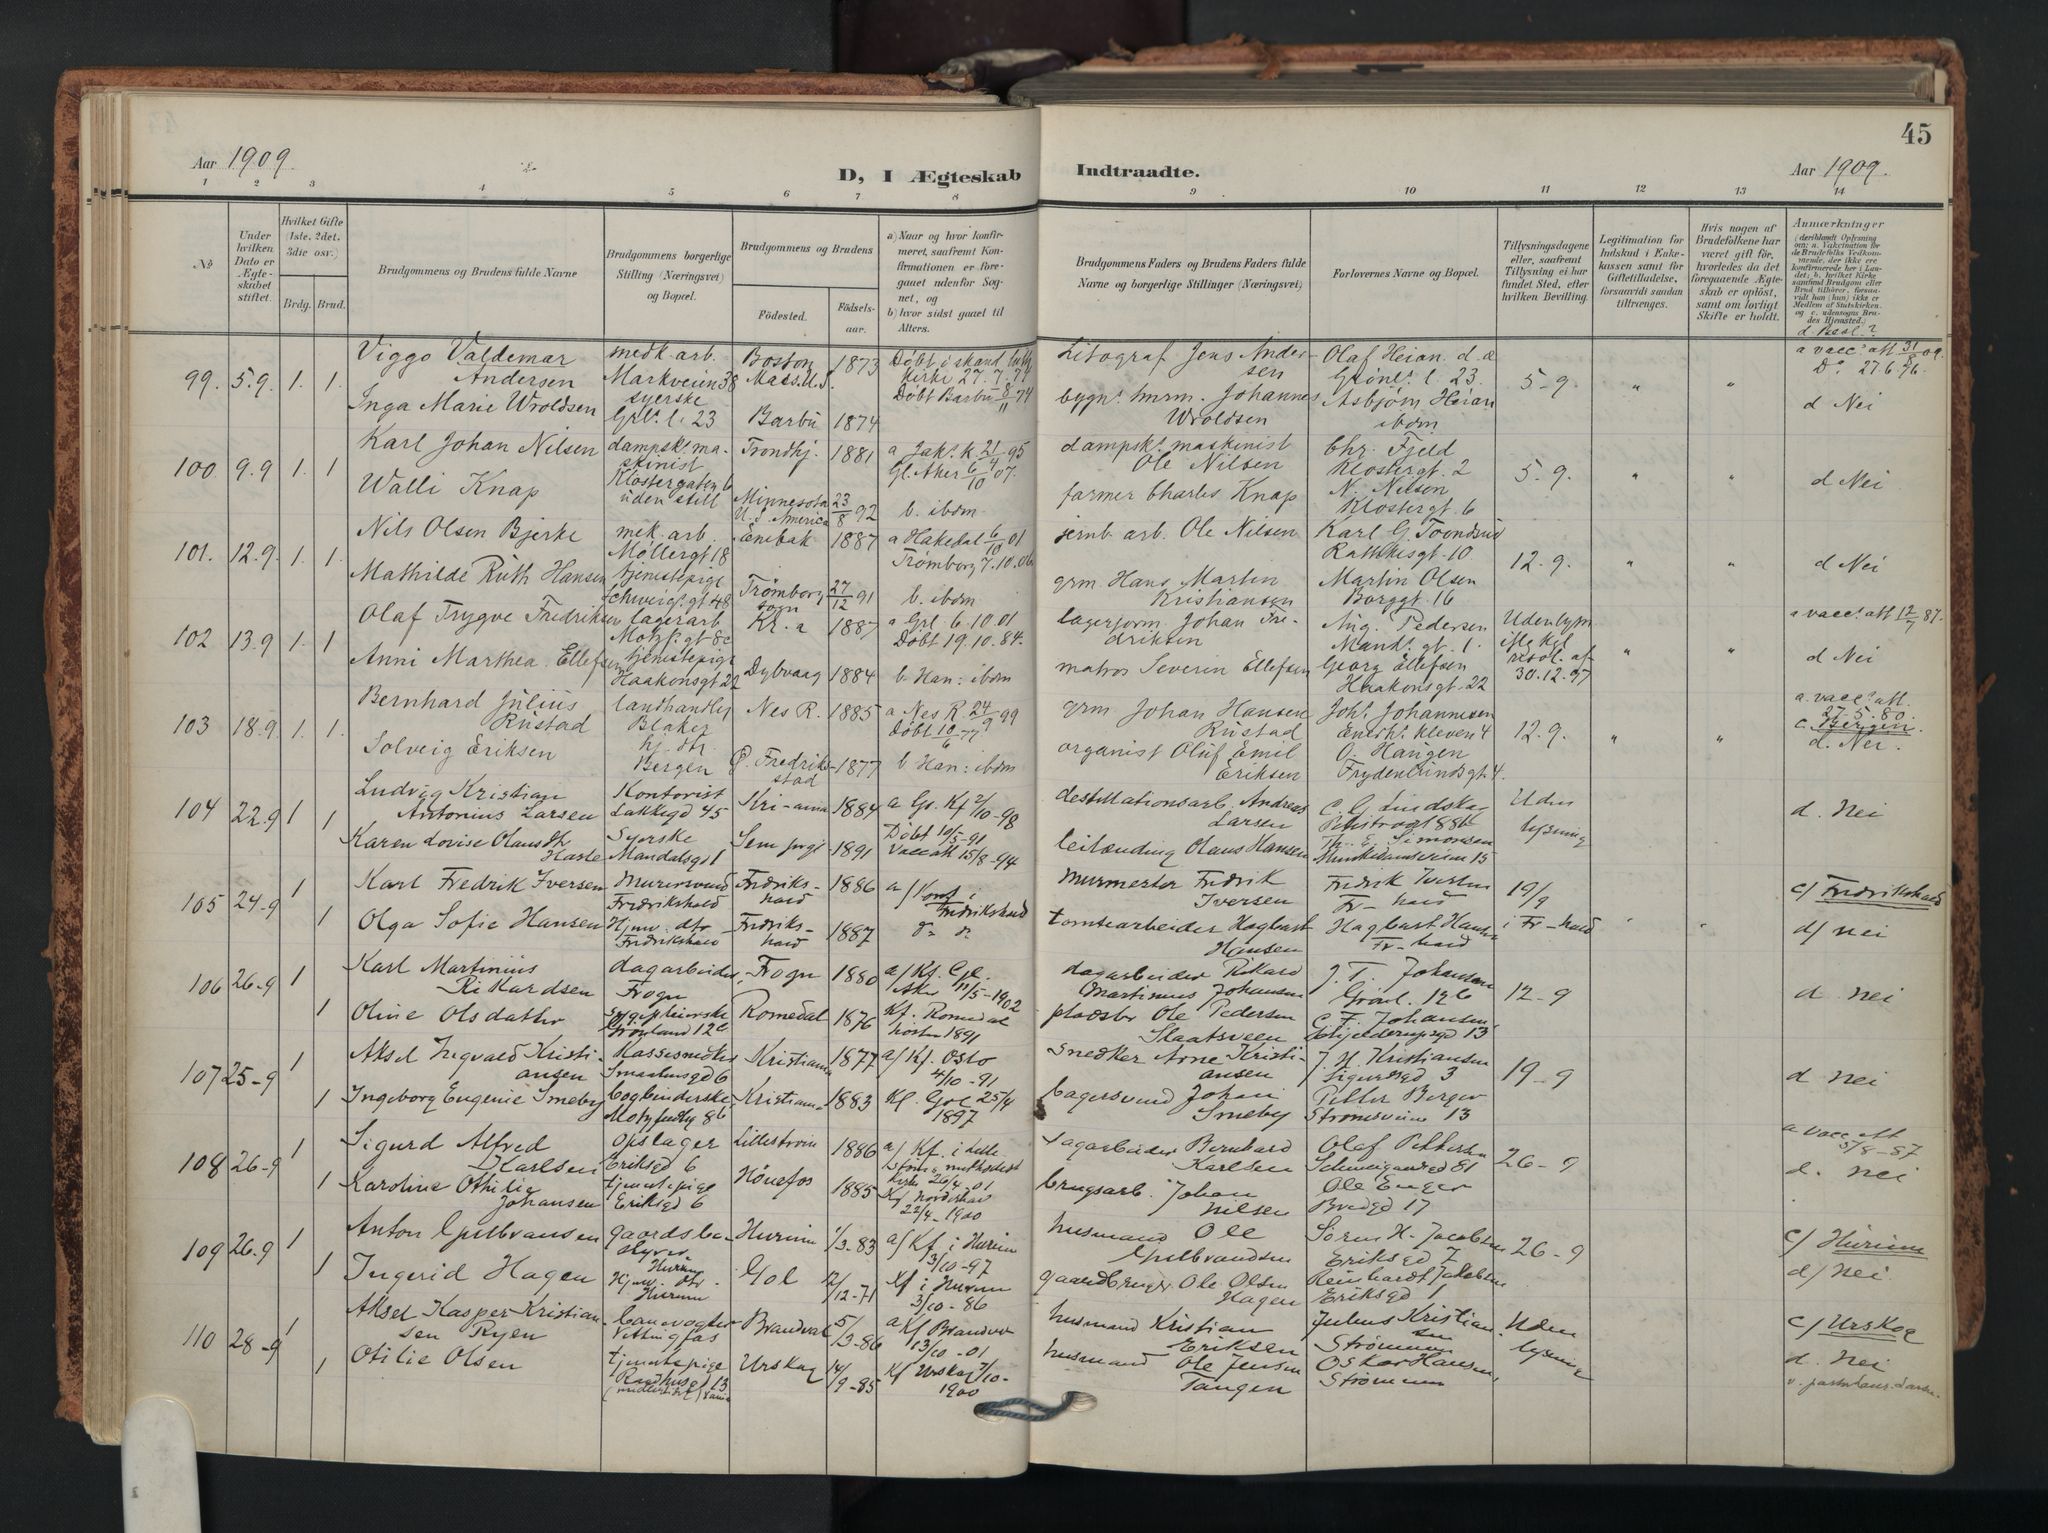 45
Aar 1909.
D, I Ægteskab Indtraadte.
Aar 1909.
1 2 3 4 5 6 7 8 9 10 11 12 13 14
No
Under hvilken Dato er Ægteskabet stiftet.
Hvilket Gifte (1ste, 2det, 3die osv.)
Brdg. Brud.
Brudgommens og Brudens fulde Navne
Brudgommens borgerlige Stilling (Næringsvei) og Bopæl.
Brudgommens og Brudens
Fødested.
Fødselsaar.
a) Naar og hvor konfirmeret, saafremt Konfirmationen er foregaaet udenfor Sognet, og
b) hvor sidst gaaet til Alters.
Brudgommens Faders og Brudens Faders fulde Navne og borgerlige Stillinger (Næringsvei)
Forlovernes Navne og Bopæl.
Tillysningsdagene eller, saafremt Tillysning ei har fundet Sted, efter hvilken Bevilling.
Legitimation for Indskud i Enkekassen samt for Giftetilladelse, forsaavidt saadan tiltrænges.
Hvis nogen af Brudefolkene har været gift før, hvorledes da det foregaaende Ægteskab er opløst, samt om lovligt Skifte er holdt.
Anmærkninger
d. Besl.?
99. 5.9. 1. 1.
Viggo Valdemar Andersen
mek. arb. Markveien 38
Boston Mass. U.S. 1873
Døbt i skand. luth. Kirke 27.7.74
Litograf Jens Andersen
Olaf Heian d. æ. Grønl. l. 23.
5-9. " "
a vacc. att. 31/8 09.
Do 27.6.76.
Inga Marie Wroldsen
syerske Grl. l. 23
Barbu 1874
Døbt Barbu 8/11 74
bygn. snrm. Johannes Wroldsen
Asbjørn Heian ibdm
d Nei
100. 9.9 1. 1.
Karl Johan Nilsen
dampsk. maskinist Klostergaten 6
Trondhj. 1881
a Jak. k 21/4 95
Gl. Aker 6/10 07.
dampsk. maskinist Ole Nilsen
Chr. Fjeld Klostergt. 2
5-9. " "
d Nei
Walli Knap
uden still
Minnesota U.S. America 23/8 92
b. ibdm
farmer Charles Knap
N. Nilson Klostergt. 6
101. 12.9. 1. 1.
Nils Olsen Bjerke
mek. arb. Møllergt 18
Enebak 1887
a Hakedal 6/10 01
jernb. arb. Ole Nilsen
Karl G. Toondsrud Rathkesgt. 10
12-9. " "
d Nei
Mathilde Ruth Hansen
tjenestepige Schweig. gt 48
Trømborg sogn 27/12 91
Trømborg 7.10.06
b. ibdm
grm. Hans Martin Kristiansen
Martin Olsen Borggt. 16
102 13.9 1. 1.
Olaf Trygve Fredriksen
lagerarb Motzf. gt 8c
Kr.a 1887
a Grl. 6.10.01
Døbt 19.10.84.
lagerform. Johan Fredriksen
Aug. Pedersen Munk. gt. 1.
Uden lysn. iflg kgl. resol. af 30.12.97
" "
a vacc. att 12/7 87.
d Nei
Anni Marthea Ellefsen
tjenestepige Haakonsgt 22
Dybvaag 1884
b. Han: ibdm
matros Severin Ellefsen
Georg Ellefsen Haakonsgt. 22
103 18.9 1. 1.
Bernhard Julius Rustad
landhandler Blaker
Nes R. 1885
a Nes R. 24/9 99
Døbt 10/6 77
grm. Johan Hansen Rustad
Joh. Johannesen Enerh. kleven 4
12-9. " "
a. vacc. att. 27.5.80.
c. Bergen
d. Nei.
Solveig Eriksen
hj. dtr. Bergen
Gl. Fredrikstad 1877
b Han: ibdm
organist Oluf Emil Eriksen
O. Haugen Frydenlundsgt 4.
104 22.9 1 1
Ludvig Kristian Antonius Larsen
Kontorist Lakkegd 45
Kri-ania 1884
a Gr. Kf 2/10-98
destillationsarb. Andreas Larsen
Uden lysning
d. Nei
Karen Lovise Olausdtr Hasle
Syerske Mandalsgd 1
Sem prgj 1891
Døbt 10/5-91
Vacc att 15/8-94
leilænding Olaus Hansen
Th. E. Simonsen Munkedamsveien 15
105 24-9 1 1
Karl Fredrik Iversen
Murersvend Fredrikshald
Fredrikshald 1886
a/ Konf i Fredrikshald
Murmester Fredrik Iversen
Fredrik Iversen Fr-hald
19/9 i Fr-hald
c/ Fredrikshald
d/ Nei
Olga Sofie Hansen
Hjmv. dtr Fredrikshald
Fredrikshald 1887
do do
tomtearbeider Hagbart Hansen
Hagbart Hansen Fr-hald
106 26-9 1 1
Karl Martinius Rikardsen
dagarbeider Frogn
Frogn 1880
a/ Kf. Gl. Aker 11/5-1902
dagarbeider Rikard Martinus Johansen
J. T. Johansen Grønl. 12c
12-9
d. Nei
Oline Olsdatter
Grønland 12c
Romedal 1876
Kf. Romedal høsten 1891
pladsbr Ole Pedersen Slaatsveen
C. F. Johansen Schjelderupsgd 13
107 25-9 1 1
Aksel Ingvald Kristiansen
Kassesnedker Smaalensgd 6
Kristiania 1877
a/ Kf. Oslo 4/10-91
Snedker Arne Kristiansen
J. H. Kristiansen Sigurdsgd 3
19-9
d Nei
Ingeborg Eugenie Smeby
bogbinderske
Kristiania 1883
Kf. Grl 25/4 1897
bagersvend Johan Smeby
Petter Berger Strømsveien 13
108 26-9 1 1
Sigurd Alfred Karlsen
Opslager Eriksgd 6
Lillestrøm 1886
a/ Kf. i Lillestrøms methodist kirke 26/4 01
sagarbeider Bernhard Karlsen
Olaf Pettersen Schweigaardsgd 81
26-9
a vacc att 5/8-87
d. Nei
Karoline Othilie Johansen
tjenestepige Eriksgd 6
Hønefos 1885
Kf Norderhov 22/4-1900
brugsarb. Johan Nilsen
Ole Enger Bredgd 17
109 26-9 1 1
Anton Gulbransen
gaardsbestyrer Hurum
Hurum 1/3-83
a/ Kf. i Hurum 3/10-97
husmand Ole Gulbrandsen
Søren H. Jacobsen Eriksgd 7
26-9
c/ Hurum
d/ Nei
Ingerid Hagen
Hjmv. dtr Hurum
Gol 12/12-71
Kf i Hurum 3/10-86
gaardbruger Ole Olsen Hagen
Reinhardt Jakobsen Eriksgd 1
110 28-9 1 1
Aksel Kasper Kristiansen Ryen
banevogter
Brandval 5/3-86
a/ Kf Brandval 13/10-01
husmand Kristian Eriksen
Julius Kristiansen Strømmen
Uden lysning
c/ Urskog
d. Nei
Otilie Olsen
tjenestepige Raadhusgd 13
Urskog 14/9-85
Kf Urskog 7/10-1900
husmand Ole Jensen Tangen
Oskar Hansen, Strømmen